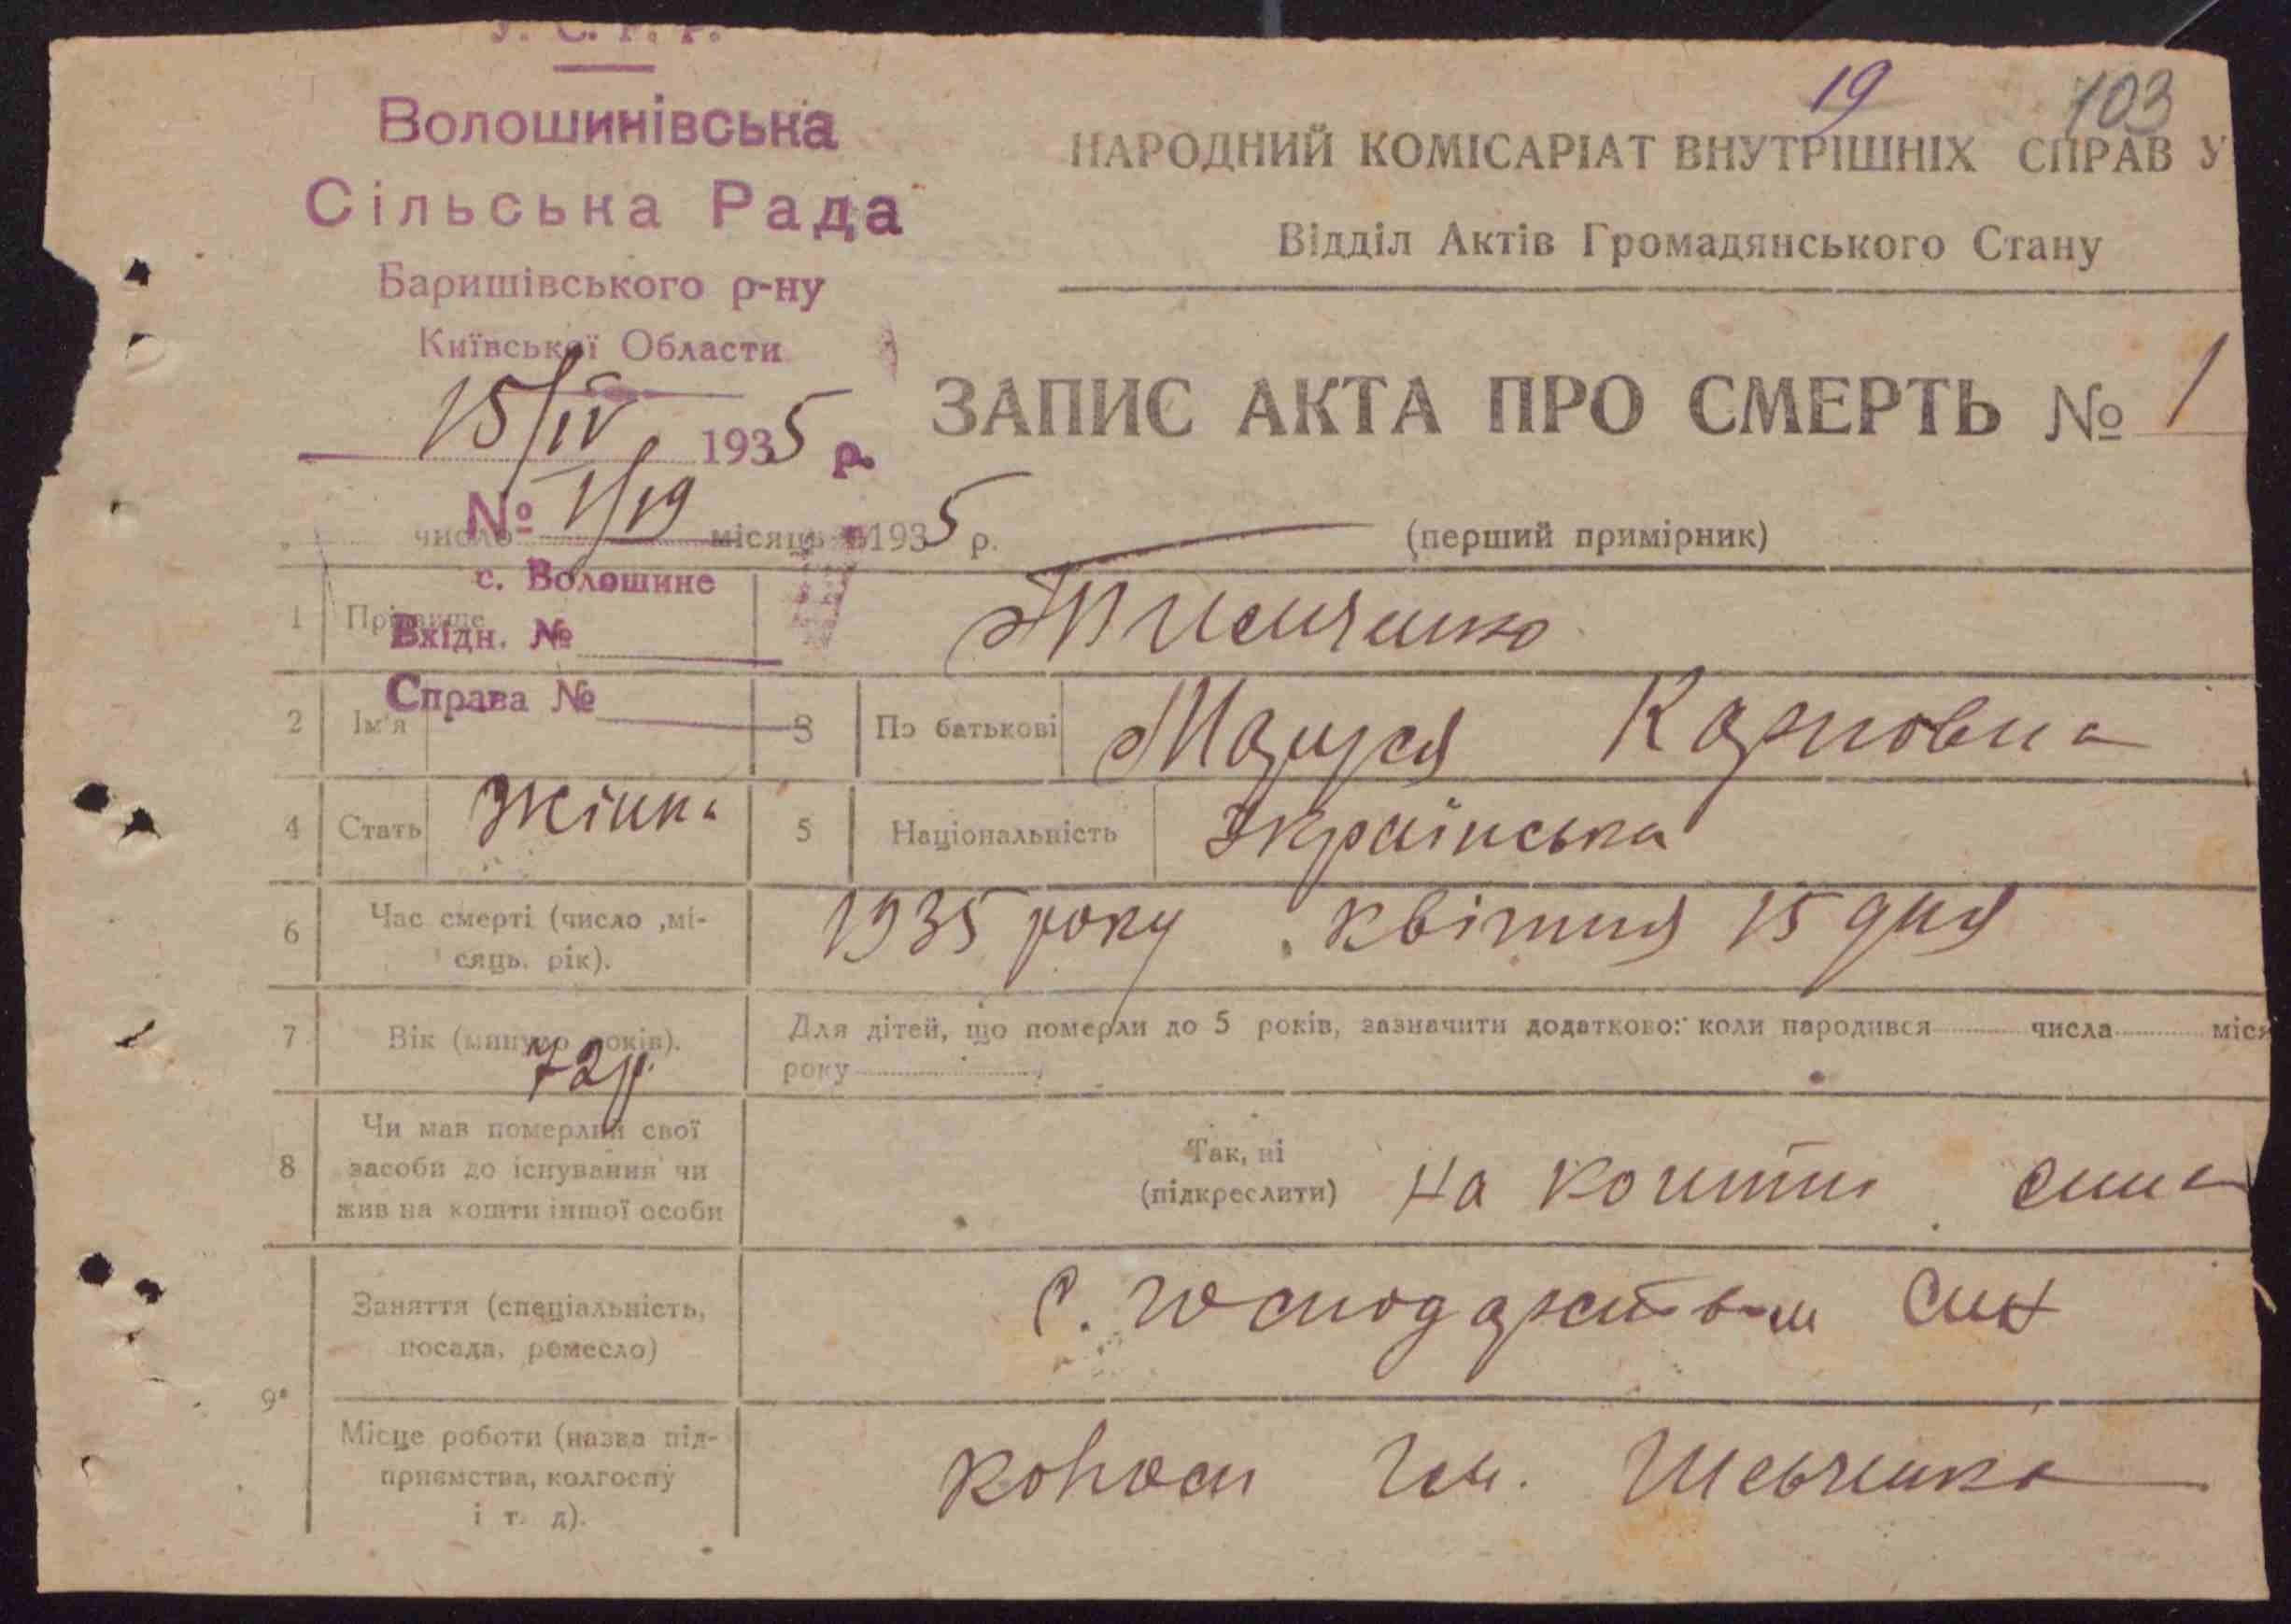 У. С. Р. Р.
Волошинівська
Сільська Рада
Баришівського р-ну
Київської Области
15/IV 1935 р.
№ 1/19
число місяць 1935 р.
с. Волошине
Вхідн. №
Справа №
19 103
НАРОДНИЙ КОМІСАРІАТ ВНУТРІШНІХ СПРАВ У
Відділ Актів Громадянського Стану
ЗАПИС АКТА ПРО СМЕРТЬ № 1
(перший примірник)
1 Прізвище
2 Ім'я 3 По батькові Карповна
4 Стать Жінка 5 Національність Українська
6 Час смерті (число ,мі-
сяць, рік). 1935 року квітня 15 дня
7 Вік (минуло років). 72 р.
Для дітей, що померли до 5 років, зазначити додатково: коли народився числа міся
року
8 Чи мав померлий свої
засоби до існування чи
жив на кошти іншої особи
Так, ні
(підкреслити) на кошти сина
9 Заняття (спеціальність,
посада, ремесло) С. господарством син
Місце роботи (назва під-
приємства, колгоспу
і т. д). колгосп Ім. Шевченка